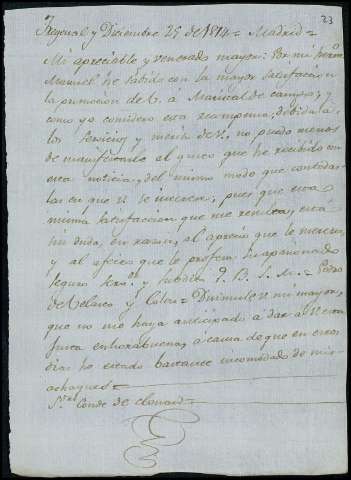 23
Fregenal y Diciembre 25 de 1874 = Madrid =
Mi apreciable y venerado mayor: Por mi
Manuel he sabido con la mayor satisfaccion
la promocion de V. á Mariscal de campo; y
como yo considero esta recompensa, debida á
los servicios y merito de V. no puedo menos
de manifestarle el gusto que he recibido con
esta noticia, del mismo modo que con todas
las en que V. se interese; pues que esta
misma satisfaccion que me resulta, está
sin duda, en razon, al aprecio que le merezco,
y al afecto que le profesa su apasionado
seguro y subdito Q. B. S. M. = Pedro
de Velasco y = Disimule V. mi mayor,
que no me haya anticipado á dar á V. esta
justa enhorabuena, á causa de que en estos
dias he estado bastante incomodado de mis
achaques =
Sr. Conde de Clonard =